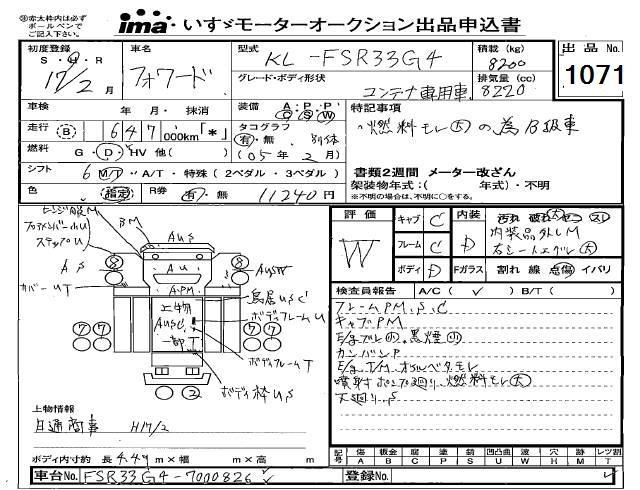 ※赤太枠内は必ず
ボールペンで
ご記入下さい。
ima いすゞモーターオークション出品申込書
初度登録 S・H・R 17/2月
車名 フォワード
型式 KL-FSR33G4
積載(kg) 8200
出品No. 1071
グレード・ボディ形状 コンテナ専用車
排気量(cc) 8220
車検 年 月・抹消
装備 A・P・P C S W
特記事項
走行 B 647 000km「*」
タコグラフ 有・無 別体 (05年2月)
燃料モレ大の為B級車
燃料 G・D・HV 他( )
シフト 6 M/T・A/T・特殊(2ペダル・3ペダル)
書類2週間 メーター改ざん
色 指定
R券 有・無 11240円
架装物年式:( 年式)・不明
※不明の場合は、不明に○をする。
エンジン下廻M
ステップU
BM
AUS
AS
AU
AUSW
カバーUT
A,PM
鳥居USC
上物
AUSC
ボディフレームU
一部T
ボディフレームT
ボディ枠US
8 8
7 7 7 7
2
評価 W
キャブ C
フレーム C
ボディ D
内装 D
汚れ 破れ コゲ スレ
内装品外しM
右シートエグレ大
Fガラス 割れ 線 点傷 イバリ
検査員報告 A/C( ✓ ) B/T( )
フレームPM,S,C
キャブPM
E/gブレ小,黒煙小
カンバンP
E/g,T/M オルベタモレ
噴射ポンプ廻り燃料モレ大
下廻りS
上物情報
日通商事 H17/2
ボディ内寸約 長4.49m×幅 m×高 m
記号 傷A 板金B 腐C 塗P 錆S 凹凸曲U 波W 穴H 跡M レツ割T
車台No. FSR33G4-7000826
登録No.